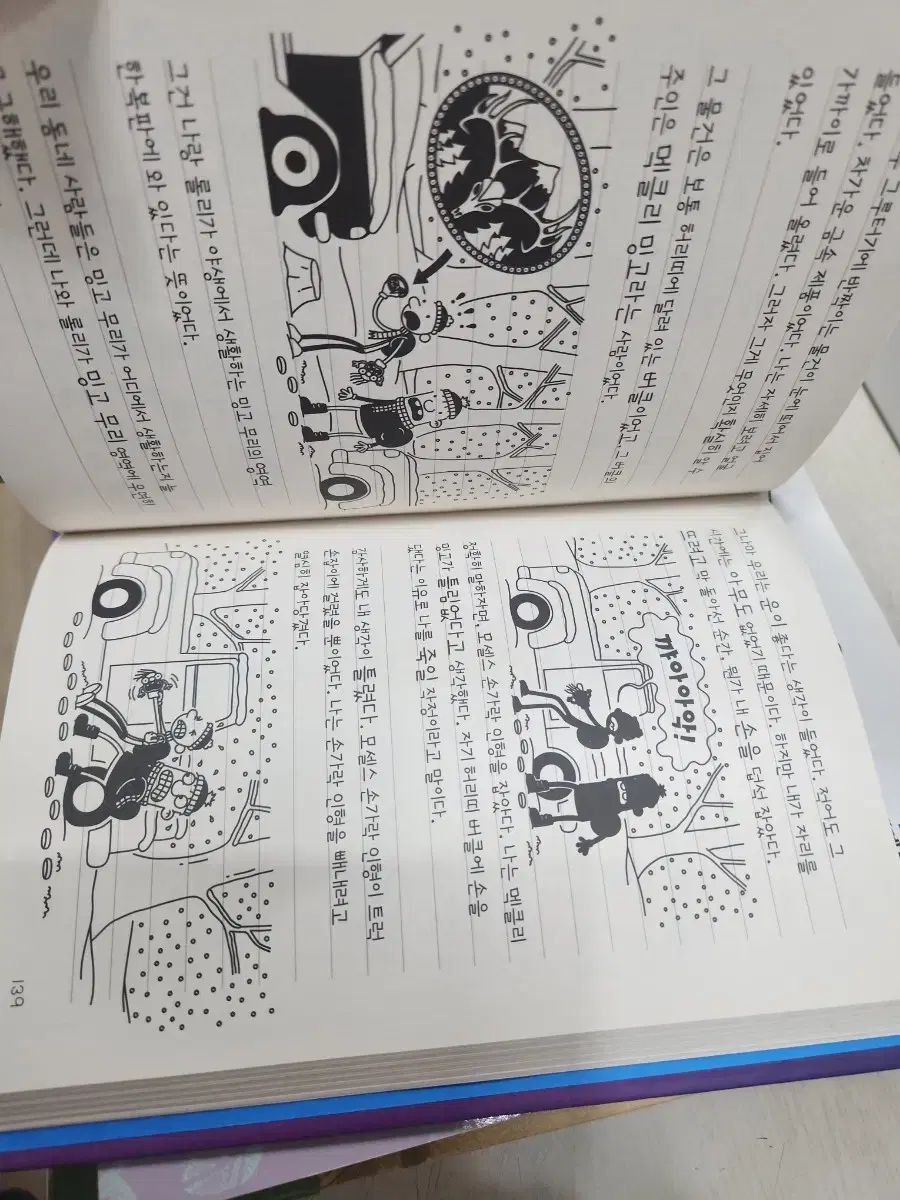 그루터기에 반짝이는 물건이 눈에 띄어서 집어
들었다. 차가운 금속 제품이었다. 나는 자세히 보려고 얼굴
가까이로 들어 올렸다. 그러자 그게 무엇인지 확실히 알 수
있었다.
그 물건은 보통 허리띠에 달려 있는 버클이었고, 그 버클의
주인은 멕클리 밍고라는 사람이었다.
그건 나랑 롤리가 야생에서 생활하는 밍고 무리의 영역
한복판에 와 있다는 뜻이었다.
우리 동네 사람들은 밍고 무리가 어디에서 생활하는지 늘
궁금해했다. 그런데 나와 롤리가 밍고 무리 영역에 우연히
그나마 우리는 운이 좋다는 생각이 들었다. 적어도 그
시간에는 아무도 없었기 때문이다. 하지만 내가 자리를
뜨려고 막 돌아선 순간, 뭔가 내 손을 덥석 잡았다.
까아아악!
정확히 말하자면, 모세스 손가락 인형을 잡았다. 나는 멕클리
밍고가 틀림없다고 생각했다. 자기 허리띠 버클에 손을
댔다는 이유로 나를 죽일 작정이라고 말이다.
감사하게도 내 생각이 틀렸다. 모세스 손가락 인형이 트럭
손잡이에 걸렸을 뿐이었다. 나는 손가락 인형을 빼내려고
열심히 잡아당겼다.
139